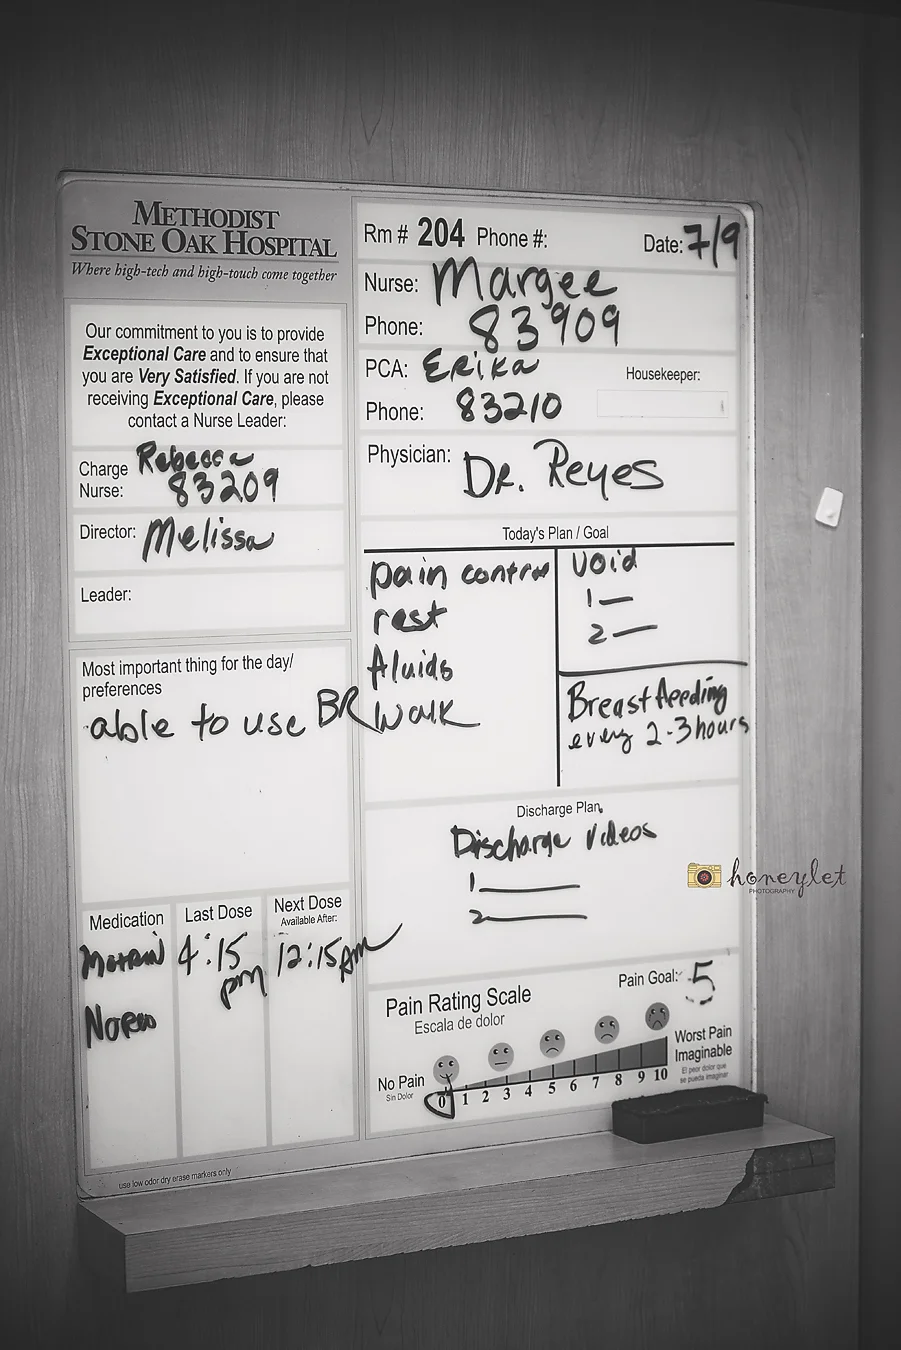 METHODIST
STONE OAK HOSPITAL
Where high-tech and high-touch come together
Our commitment to you is to provide
Exceptional Care and to ensure that
you are Very Satisfied. If you are not
receiving Exceptional Care, please
contact a Nurse Leader:
Charge Nurse: Rebecca
83209
Director: Melissa
Leader:
Most important thing for the day/
preferences
able to use BR
Medication Last Dose Next Dose
Available After:
Motrin 4:15 pm 12:15 AM
Norco
use low odor dry erase markers only
Rm # 204 Phone #: Date: 7/9
Nurse: Margee
Phone: 83909
PCA: Erika Housekeeper:
Phone: 83210
Physician: Dr. Reyes
Today's Plan / Goal
pain control
rest
fluids
walk
void
1 —
2 —
Breastfeeding
every 2-3 hours
Discharge Plan
Discharge Videos
1
2
Pain Rating Scale
Escala de dolor
Pain Goal: 5
No Pain
Sin Dolor
0 1 2 3 4 5 6 7 8 9 10
Worst Pain
Imaginable
El peor dolor que
se pueda imaginar
honeylet
PHOTOGRAPHY